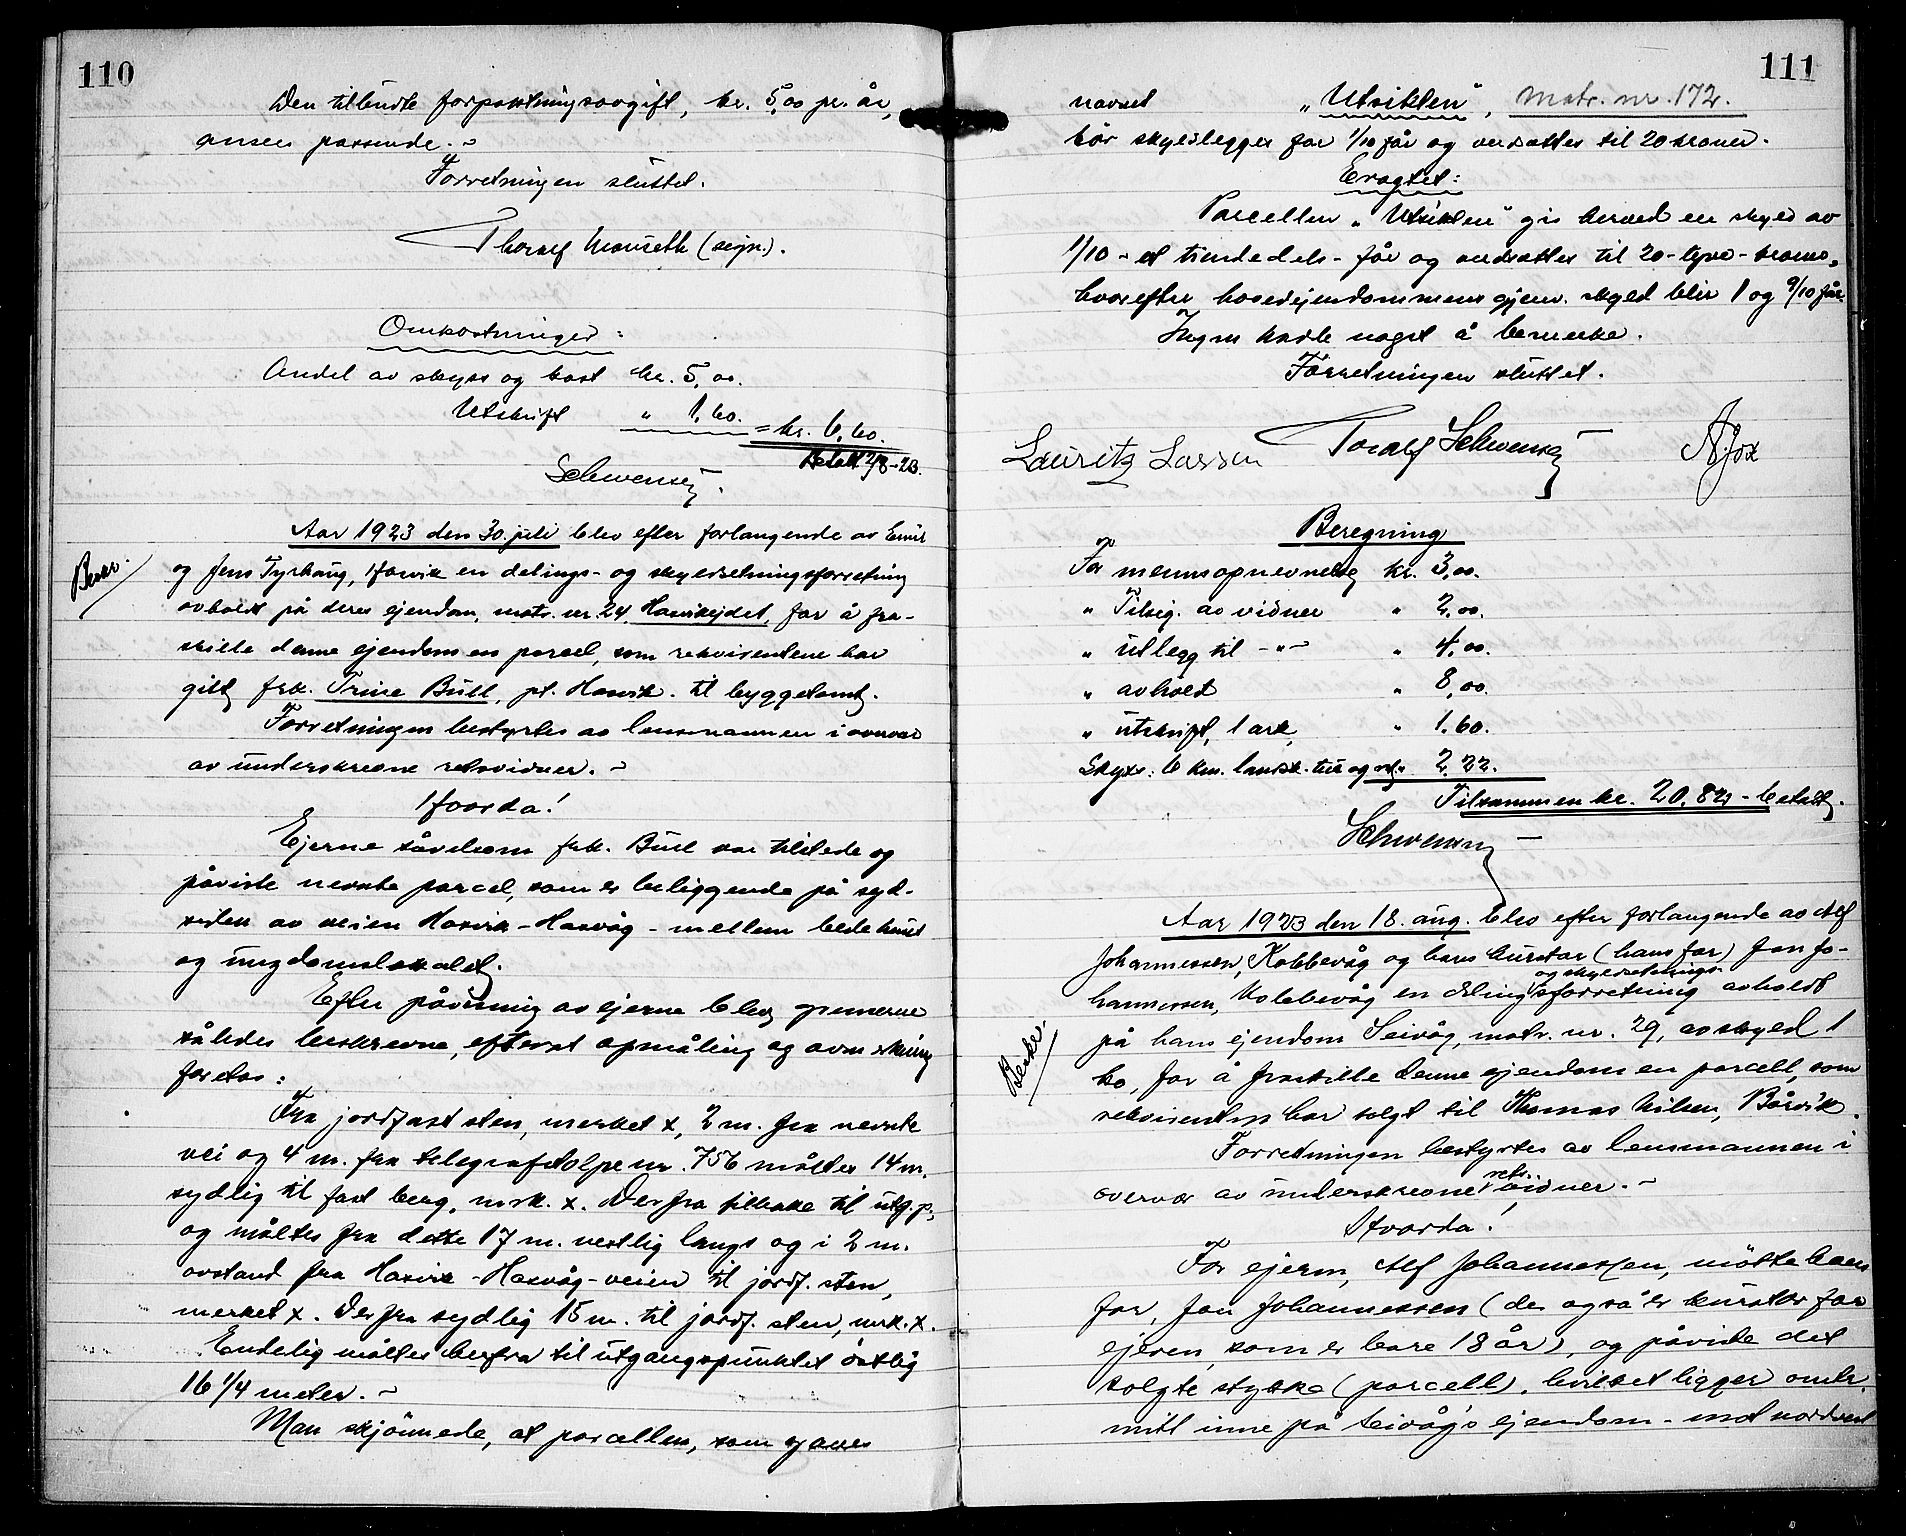 110
Den tilbudte forpaktningsavgift, kr. 5,00 pr. år,
ansees passende. -
Forretningen sluttet.
Thoralf (sign.).
Omkostninger:
Andel av skyss og kost kr. 5,00.
Utskrift " 1,60. = kr. 6,60.
Betalt 2/8-23.
Schwensen.
Aar 1923 den 30. juli blev efter forlangende av
og Jens Tyrhaug, Hasvik en delings- og skyldsetningsforretning
avholdt på deres ejendom, matr. nr. 24, Hasvikejdet, for å fra-
skille denne ejendom en parcel, som rekvirentene har
git frk. Trine Bull, pt. Hasvik. til byggetomt.
Forretningen bestyrtes av lensmannen i overvær
av underskrevne retsvidner. -
Hvorda!
Ejerne såvelsom frk. Bull var tilstede og
påviste nevnte parcel, som er beliggende på syd-
siden av veien Hasvik-Hasvåg - mellem bedehuset
og ungdomslokalet.
Efter påvisning av ejerne blev grensene
således beskrevne, efterat opmåling og avmerkning
foretos:
Fra jordfast sten, merket x, 2 m. fra nevnte
vei og 4 m. fra telegrafstolpe nr. 756 måltes 14 m.
sydlig til fast berg, mrk. x. Derfra tilbake til utg. p.,
og måltes fra dette 17 m. vestlig langs og i 2 m.
avstand fra Hasvik-Hasvåg-veien til jordf. sten,
merket x. Derfra sydlig 15 m. til jordf. sten, mrk. x.
Endelig måltes herfra til utgangspunktet östlig
16 1/4 meter. -
Man skjönnede, at parcellen, som gaves
111
navnet "Utsikten", Matr. nr. 172.
bör skyldlegges for 1/10 får og verdsettes til 20 kroner.
Eragtet:
Parcellen "Utsikten" gis herved en skyld av
1/10 - et tiendedels - får og verdsettes til 20 - tyve - kroner,
hvorefter hovedejendommens gjenv. skyld blir 1 og 9/10 får.
Ingen hadde noget å bemerke.
Forretningen sluttet.
Lauritz Larsen Toralf Schwensen A. Fox
Beregning
For mannsopnevnelse kr. 3,00.
" Tilsig. av vidner " 2,00.
" utlegg til -"- " 4,00.
" avholdt " 8,00.
" utskrift, 1 ark, " 1,60.
Skyss: 6 km. landsk. tur og ret. " 2,22.
Tilsammen kr. 20,82 - betalt.
Schwensen
Aar 1923 den 18. aug. blev efter forlangende av Alf
Johannessen, Kobbevåg og hans kurator (hans far) Jan Jo-
hannessen, Kobbevåg en delings og skyldsetningsforretning avholdt
på hans ejendom Seivåg, matr. nr. 29, av skyld 1
ko, for å fraskille denne ejendom en parcell, som
rekvirenten har solgt til Thomas Nilsen, Bårvik.
Forretningen bestyrtes av lensmannen i
overvær av underskrevne rets. vidner. -
Hvorda!
For ejeren, Alf Johannessen, mötte hans
far, Jan Johannessen (der også er kurator for
ejeren, som er bare 18 år), og påviste det
solgte stykke (parcell), hvilket ligger omtr.
mitt inne på Seivåg's ejendom - mot nordvest